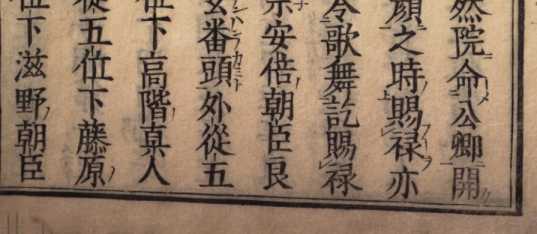 然院命公卿開
顔之時賜禄亦
令歌舞訖賜禄
宗安倍朝臣良
玄番頭外從五
位下高階真人
從五位下藤原
位下滋野朝臣